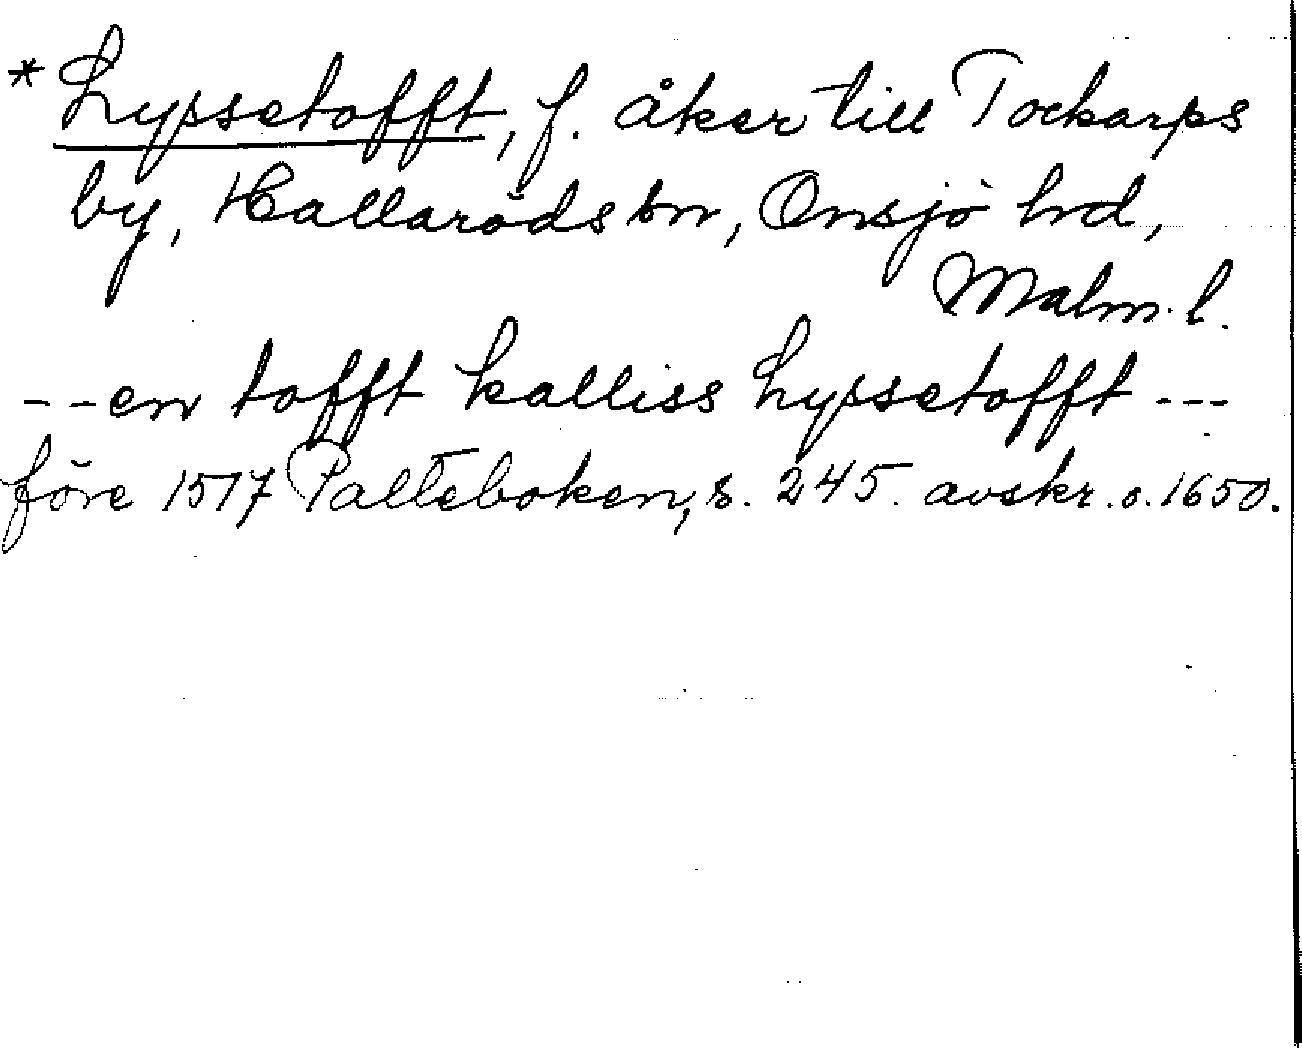 * Lypsetofft, f. åker till Tockarps
by, Hallaröds sn, Onsjö hd,
Malm. l.
-- en tofft kalliss Lypsetofft ---
före 1517 Palteboken, s. 245. avskr. o. 1650.